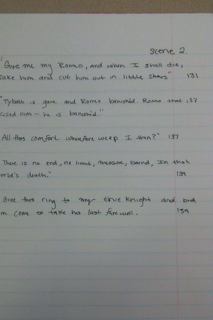 Scene 2
"Give me my Romeo, and when I shall die,
Take him and cut him out in little stars" 131
"Tybalt is gone and Romeo banished. Romeo that 137
killed him – he is banished."
All this comfort. Wherefore weep I then?" 137
There is no end, no limit, measure, bound, In that
word's death." 139
Give this ring to my true knight and bid
him come to take his last farewell. 139